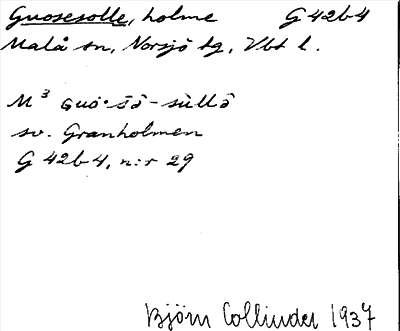 Guosesolle, holme G 42b4
Malå sn, Norsjö tg, Vbt l.
M³ Guo·sā̂-sùllô
sv. Granholmen
G 42b4, n:r 29
Björn Collinder 1937